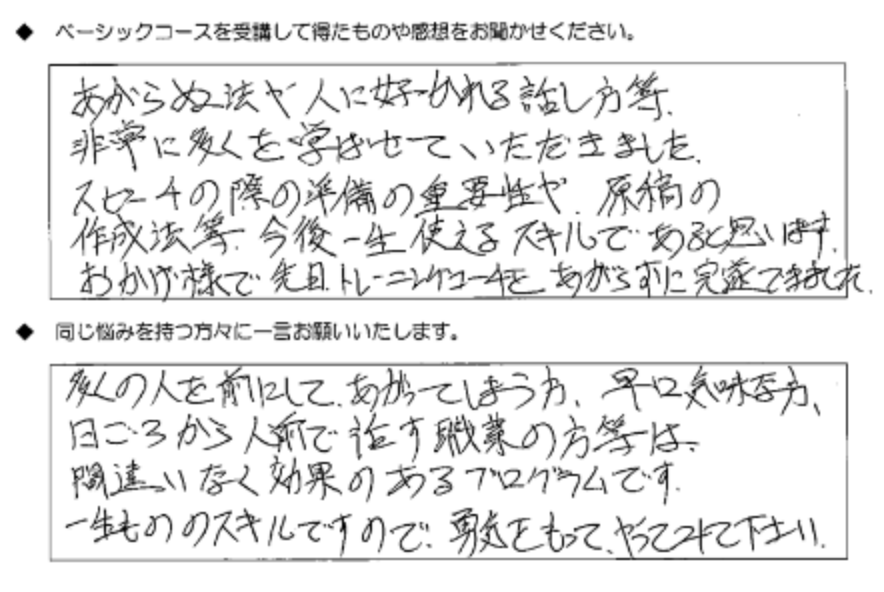 ◆ ベーシックコースを受講して得たものや感想をお聞かせください。
あがらぬ法や人に好かれる話し方等、
非常に多くを学ばせていただきました。
スピーチの際の準備の重要性や、原稿の
作成法等、今後一生使えるスキルであると思います。
おかげ様で先日、トレーニングコーチを、あがらずに完遂できました。
◆ 同じ悩みを持つ方々に一言お願いいたします。
多くの人を前にして、あがってしまう方、早口気味な方、
日ごろから人前で話す職業の方等は、
間違いなく効果のあるプログラムです。
一生もののスキルですので、勇気をもって、やってみて下さい。